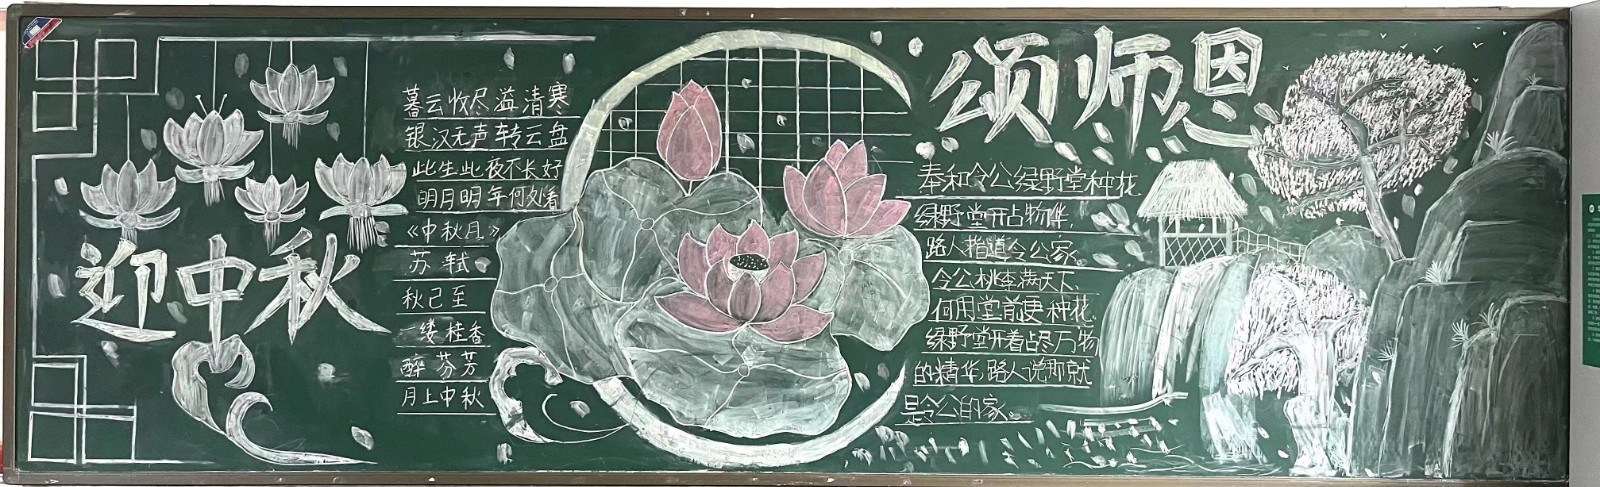 迎中秋
暮云收尽溢清寒
银汉无声转云盘
此生此夜不长好
明月明年何处看
《中秋月》
苏轼
秋已至
一缕桂香
醉芬芳
月上中秋
颂师恩
奉和令公绿野堂种花
绿野堂开占物华,
路人指道令公家。
令公桃李满天下,
何用堂前更种花。
绿野堂开着占尽万物
的精华,路人说那就
是令公的家。